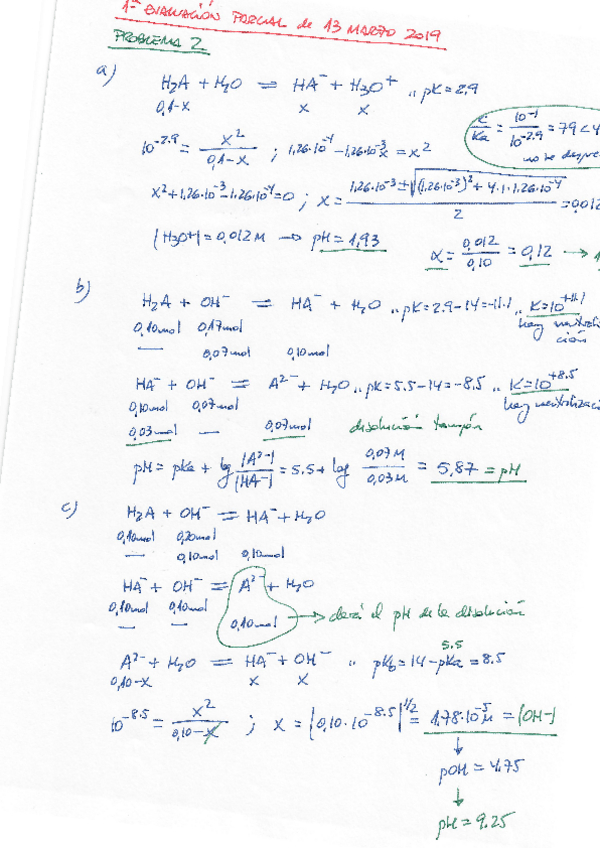 1ª EVALUACIÓN PARCIAL de 13 MARZO 2019
PROBLEMA 2
a)
H₂A + H₂O ⇌ HA⁻ + H₃O⁺ ,, pK = 2,9
0,1-x x x
c/Ka = 10⁻¹/10⁻²·⁹ = 79 < 4
no se despre
10⁻²·⁹ = x²/(0,1-x) ; 1,26·10⁻⁴ - 1,26·10⁻³x = x²
x² + 1,26·10⁻³ - 1,26·10⁻⁴ = 0 ; x = (1,26·10⁻³ ± √((1,26·10⁻³)² + 4·1·1,26·10⁻⁴))/2 = 0,012
[H₃O⁺] = 0,012 M → pH = 1,93
α = 0,012/0,10 = 0,12 →
b)
H₂A + OH⁻ ⇌ HA⁻ + H₂O ,, pK = 2.9-14 = -11.1 ,, K = 10⁺¹¹·¹
0,10mol 0,17mol
hay neutraliza
ción
— 0,07mol 0,10mol
HA⁻ + OH⁻ ⇌ A²⁻ + H₂O ,, pK = 5.5-14 = -8.5 ,, K = 10⁺⁸·⁵
0,10mol 0,07mol
hay neutralizac
0,03mol — 0,07mol disolución tampón
pH = pKa + lg [A²⁻]/[HA⁻] = 5.5 + log 0,07M/0,03M = 5,87 = pH
c)
H₂A + OH⁻ ⇌ HA⁻ + H₂O
0,10mol 0,20mol
— 0,10mol 0,10mol
HA⁻ + OH⁻ = A²⁻ + H₂O
0,10mol 0,10mol
— — 0,10mol → dará el pH de la disolución
5.5
A²⁻ + H₂O ⇌ HA⁻ + OH⁻ ,, pKb = 14 - pKa = 8.5
0,10-x x x
10⁻⁸·⁵ = x²/(0,10-x) ; x = [0,10·10⁻⁸·⁵]^1/2 = 1,78·10⁻⁵M = [OH⁻]
↓
pOH = 4.75
↓
pH = 9.25